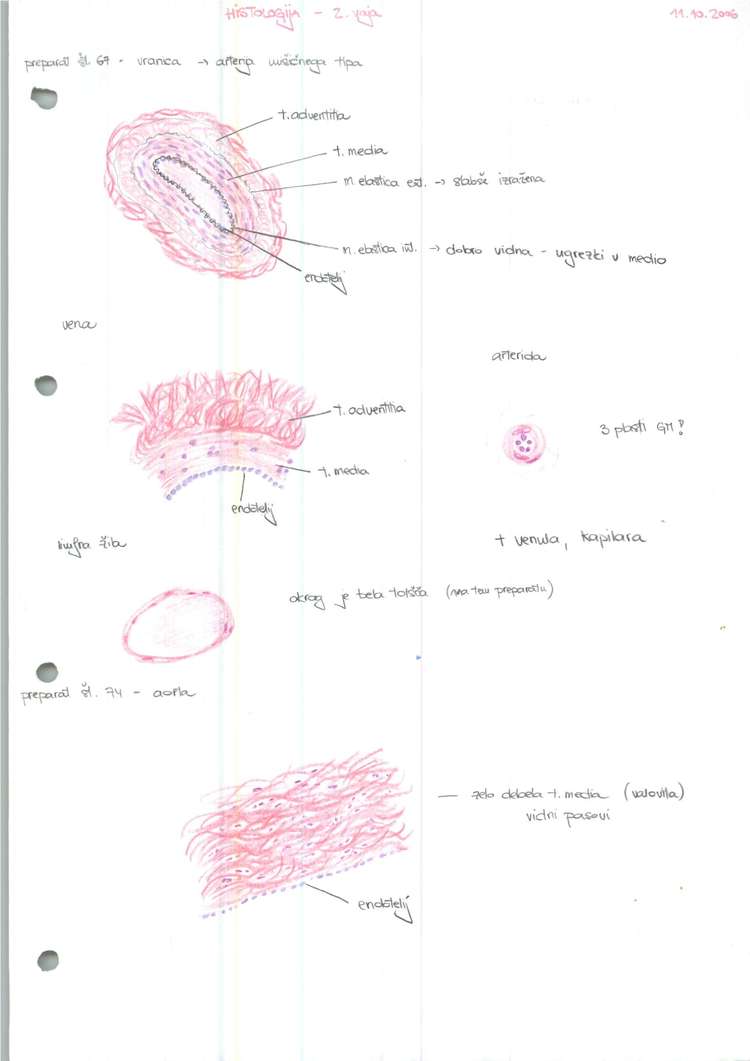 HISTOLOGIJA - 2. vaja
11.10.2006
preparat št. 67 - vranica → arterija mišičnega tipa
t. adventitia
t. media
m. elastica ext. → slabše izražena
m. elastica int. → dobro vidna - ugrezki v medio
endotelij
vena
arteriola
t. adventitia
3 plasti GM!
t. media
endotelij
limfna žila
+ venula, kapilara
okrog je bela tolšča (na tem preparatu)
preparat št. 74 - aorta
— zelo debela t. media (valovita)
vidni pasovi
endotelij